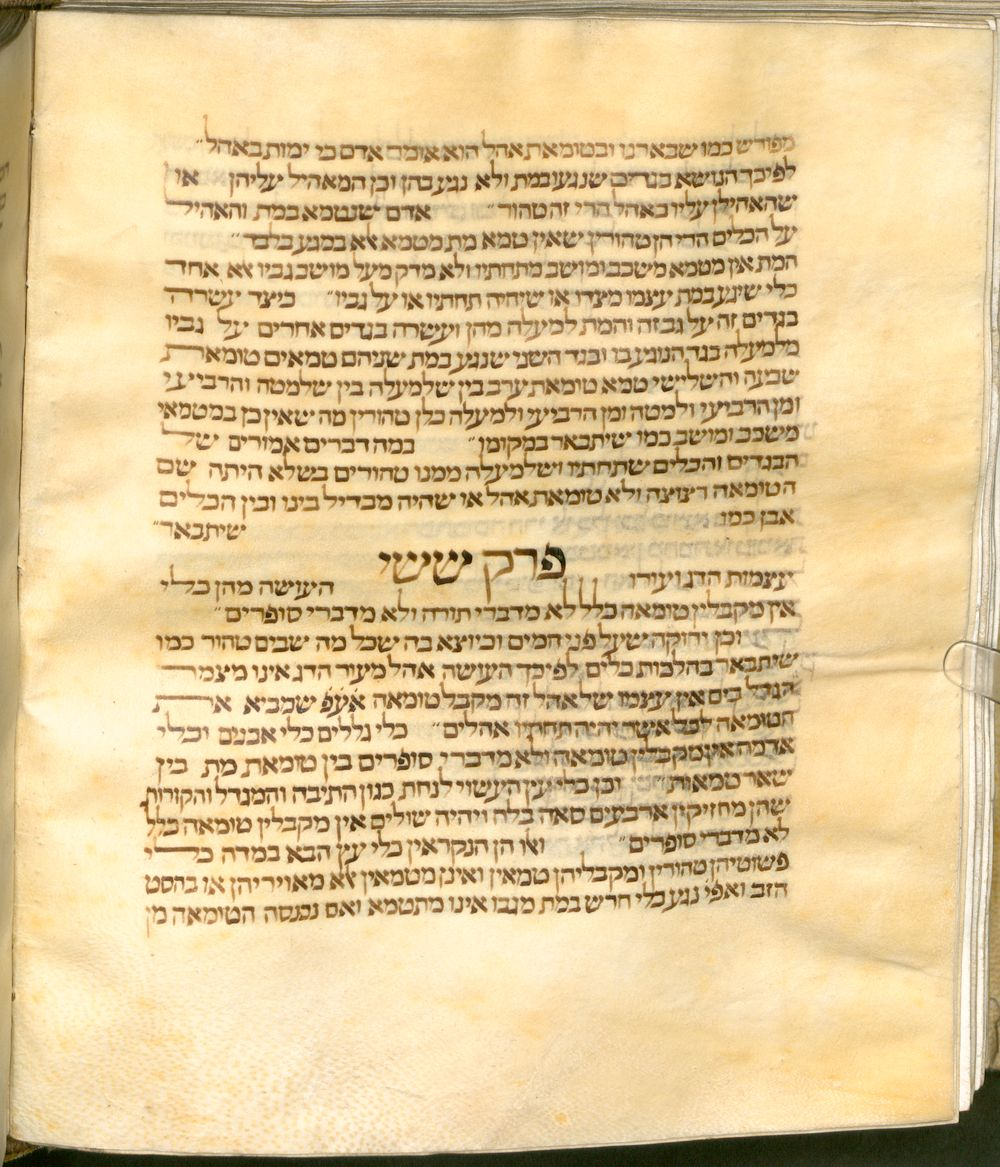 מפורש כמו שבארנו ובטומאת אהל הוא אומר אדם כי ימות באהל״
לפיכך הנושא בגדים שנגעו במת ולא נגע בהן וכן המאהיל עליהן או
שהאהילן עליו באהל הרי זה טהור״ אדם שנטמא במת והאהיל
על הכלים הרי הן טהורין שאין טמא מת מטמא אלא במגע בלבד״
המת אין מטמא משכב ומושב מתחתיו ולא מדק מעל מושב גביו אלא אחד
כלי שיגע במת עצמו מצדו או שיהיה תחתיו או על גביו״ כיצד עשרה
בגדים זה על גב זה והמת למעלה מהן ועשרה בגדים אחרים על גביו
מלמעלה בגד הנוגע בו ובגד השני שנגע במת שניהם טמאים טומאת
שבעה והשלישי טמא טומאת ערב בין שלמעלה בין שלמטה והרביעי
ומן הרביעי ולמטה ומן הרביעי ולמעלה כלן טהורין מה שאין כן במטמאי
משכב ומושב כמו שיתבאר במקומן״ במה דברים אמורים של
הבגדים והכלים שתחתיו ושלמעלה ממנו טהורים בשלא היתה שם
הטומאה רצוצה ולא טומאת אהל או שהיה מבדיל בינו ובין הכלים
אבן כמו שיתבאר״
פרק ששי
עצמות הדג ועורו העושה מהן כלי
אין מקבלין טומאה כלל לא מדברי תורה ולא מדברי סופרים״
וכן ירוקה שעל פני המים וכיוצא בה שכל מה שבים טהור כמו
שיתבאר בהלכות כלים לפיכך העושה אהל מעור הדג אינו מצמר
הגדל בים אין עצמו של אהל זה מקבל טומאה אעפ שמביא את
הטומאה לכל אשר יהיה תחתיו אהלים״ כלי גללים כלי אבנים וכלי
אדמה אין מקבלין טומאה ולא מדברי סופרים בין טומאת מת בין
שאר טמאות וכן כלי עץ העשוי לנחת כגון התיבה והמגדל והקורות
שהן מחזיקין ארבעים סאה בלח ויהיה שולים אין מקבלין טומאה כלל
לא מדברי סופרים״ ואלו הן הנקראין כלי עץ הבא במדה כלי
פשוטיהן טהורין ומקבליהן טמאין ואינן מטמאין אלא מאויריהן או בהסט
הזב ואפי נגע כלי חרש במת מגבו אינו מתטמא ואם נכנסה הטומאה מן